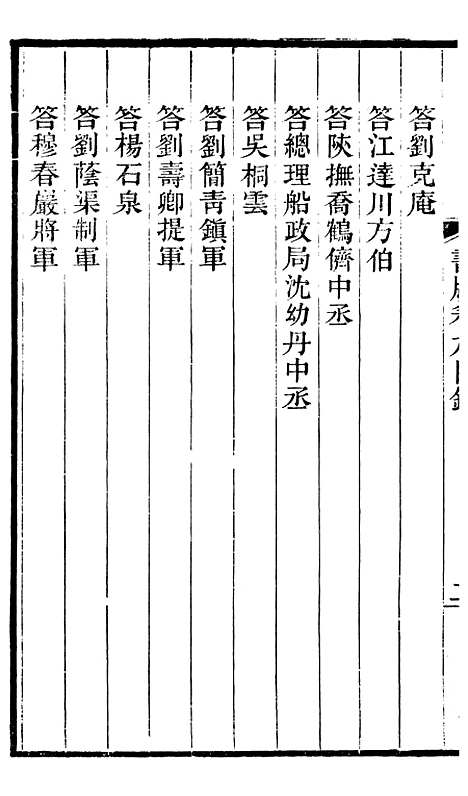 答劉克庵
答江達川方伯
答陝撫喬鶴儕中丞
答總理船政局沈幼丹中丞
答吳桐雲
答劉簡青鎮軍
答劉壽卿提軍
答楊石泉
答劉蔭渠制軍
答穆春巖將軍